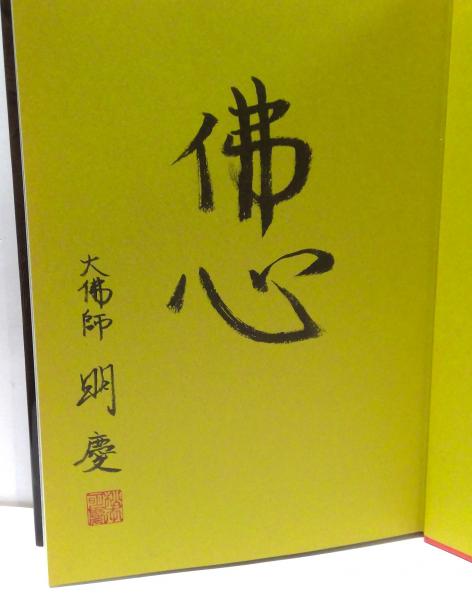 佛心
大佛師 明慶